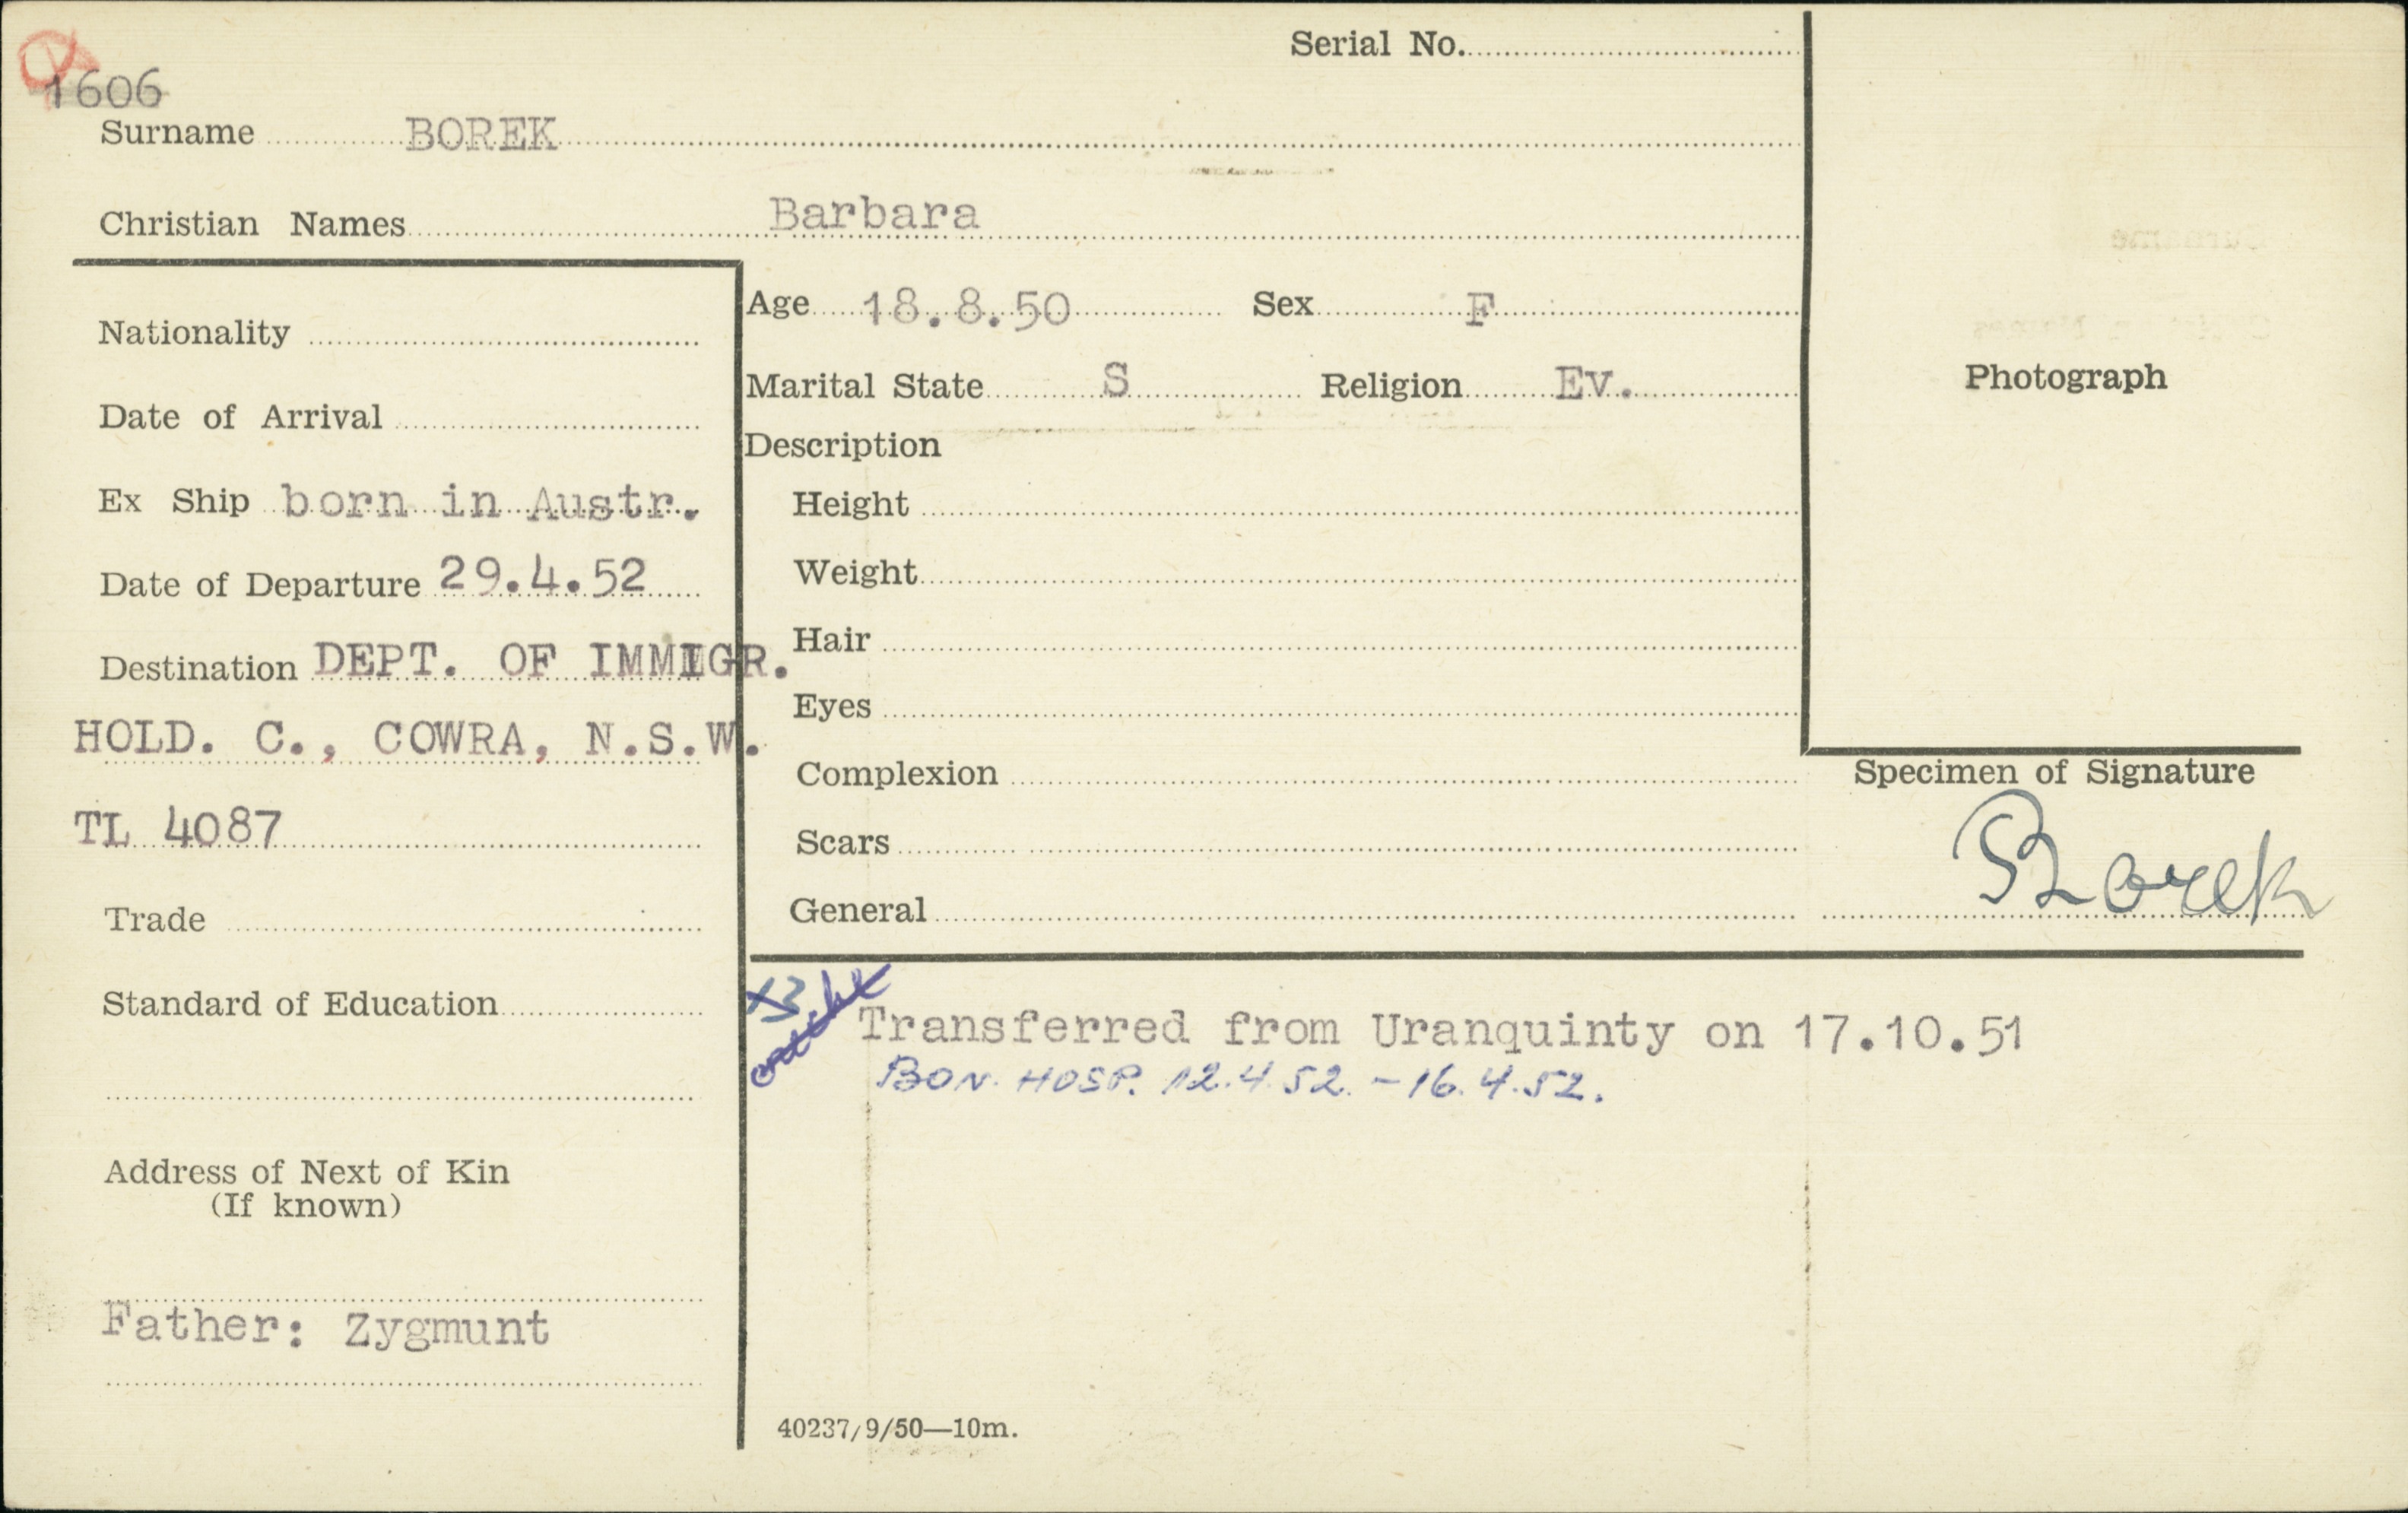 Serial No.
1606
Surname BOREK
Christian Names Barbara
Nationality
Date of Arrival
Ex Ship born in Austr.
Date of Departure 29.4.52
Destination DEPT. OF IMMIGR.
HOLD. C., COWRA, N.S.W.
TL 4087
Trade
Standard of Education
Address of Next of Kin
(If known)
Father: Zygmunt
Age 18.8.50 Sex F
Marital State S Religion Ev.
Description
Height
Weight
Hair
Eyes
Complexion
Scars
General
Photograph
Specimen of Signature
Borek
Transferred from Uranquinty on 17.10.51
BON. HOSP. 12.4.52. - 16.4.52.
40237/9/50—10m.